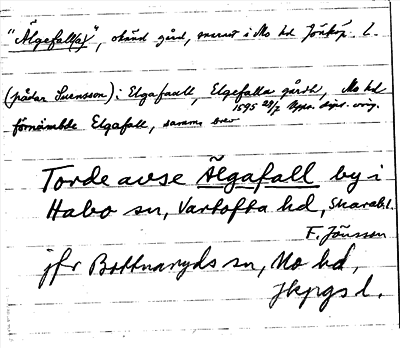 "Älgefall(a)", okänd gård, snarast i Mo hd Jönköp. l.
(prästar Svensson): Elgafaull, Elgefalla gårdh, Mo hd
1595 28/7 Uppsa. dipl. orig.
förnämbde Elgafall, samma brev
Torde avse Älgafall by i
Habo sn, Vartofta hd, Skarab.l.
F. Jönsson
jfr Bottnaryds sn, Mo hd,
Jkpgs l.